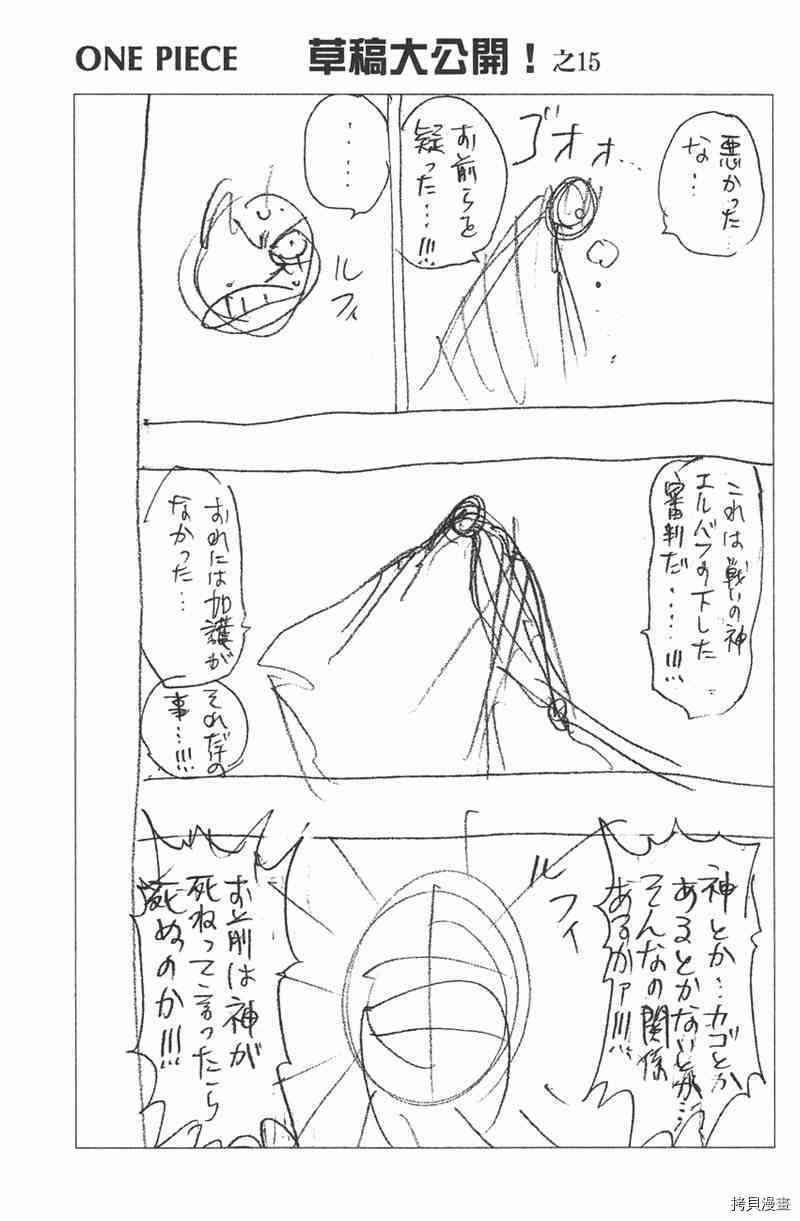 ONE PIECE 草稿大公開！之15
悪かった…
な…
ゴオオ…
お前らを
疑った…!!!
‥‥
ルフィ
これは戦いの神
エルバフの下した
審判だ‥‥!!!
おれには加護が
なかった…
それだけの
事…!!!
神とか…カゴとか
あるとかないとか…
そんなの関係
あるかァ!!!
ルフィ
お前は神が
死ねって言ったら
死ぬのか!!!
拷貝漫畫